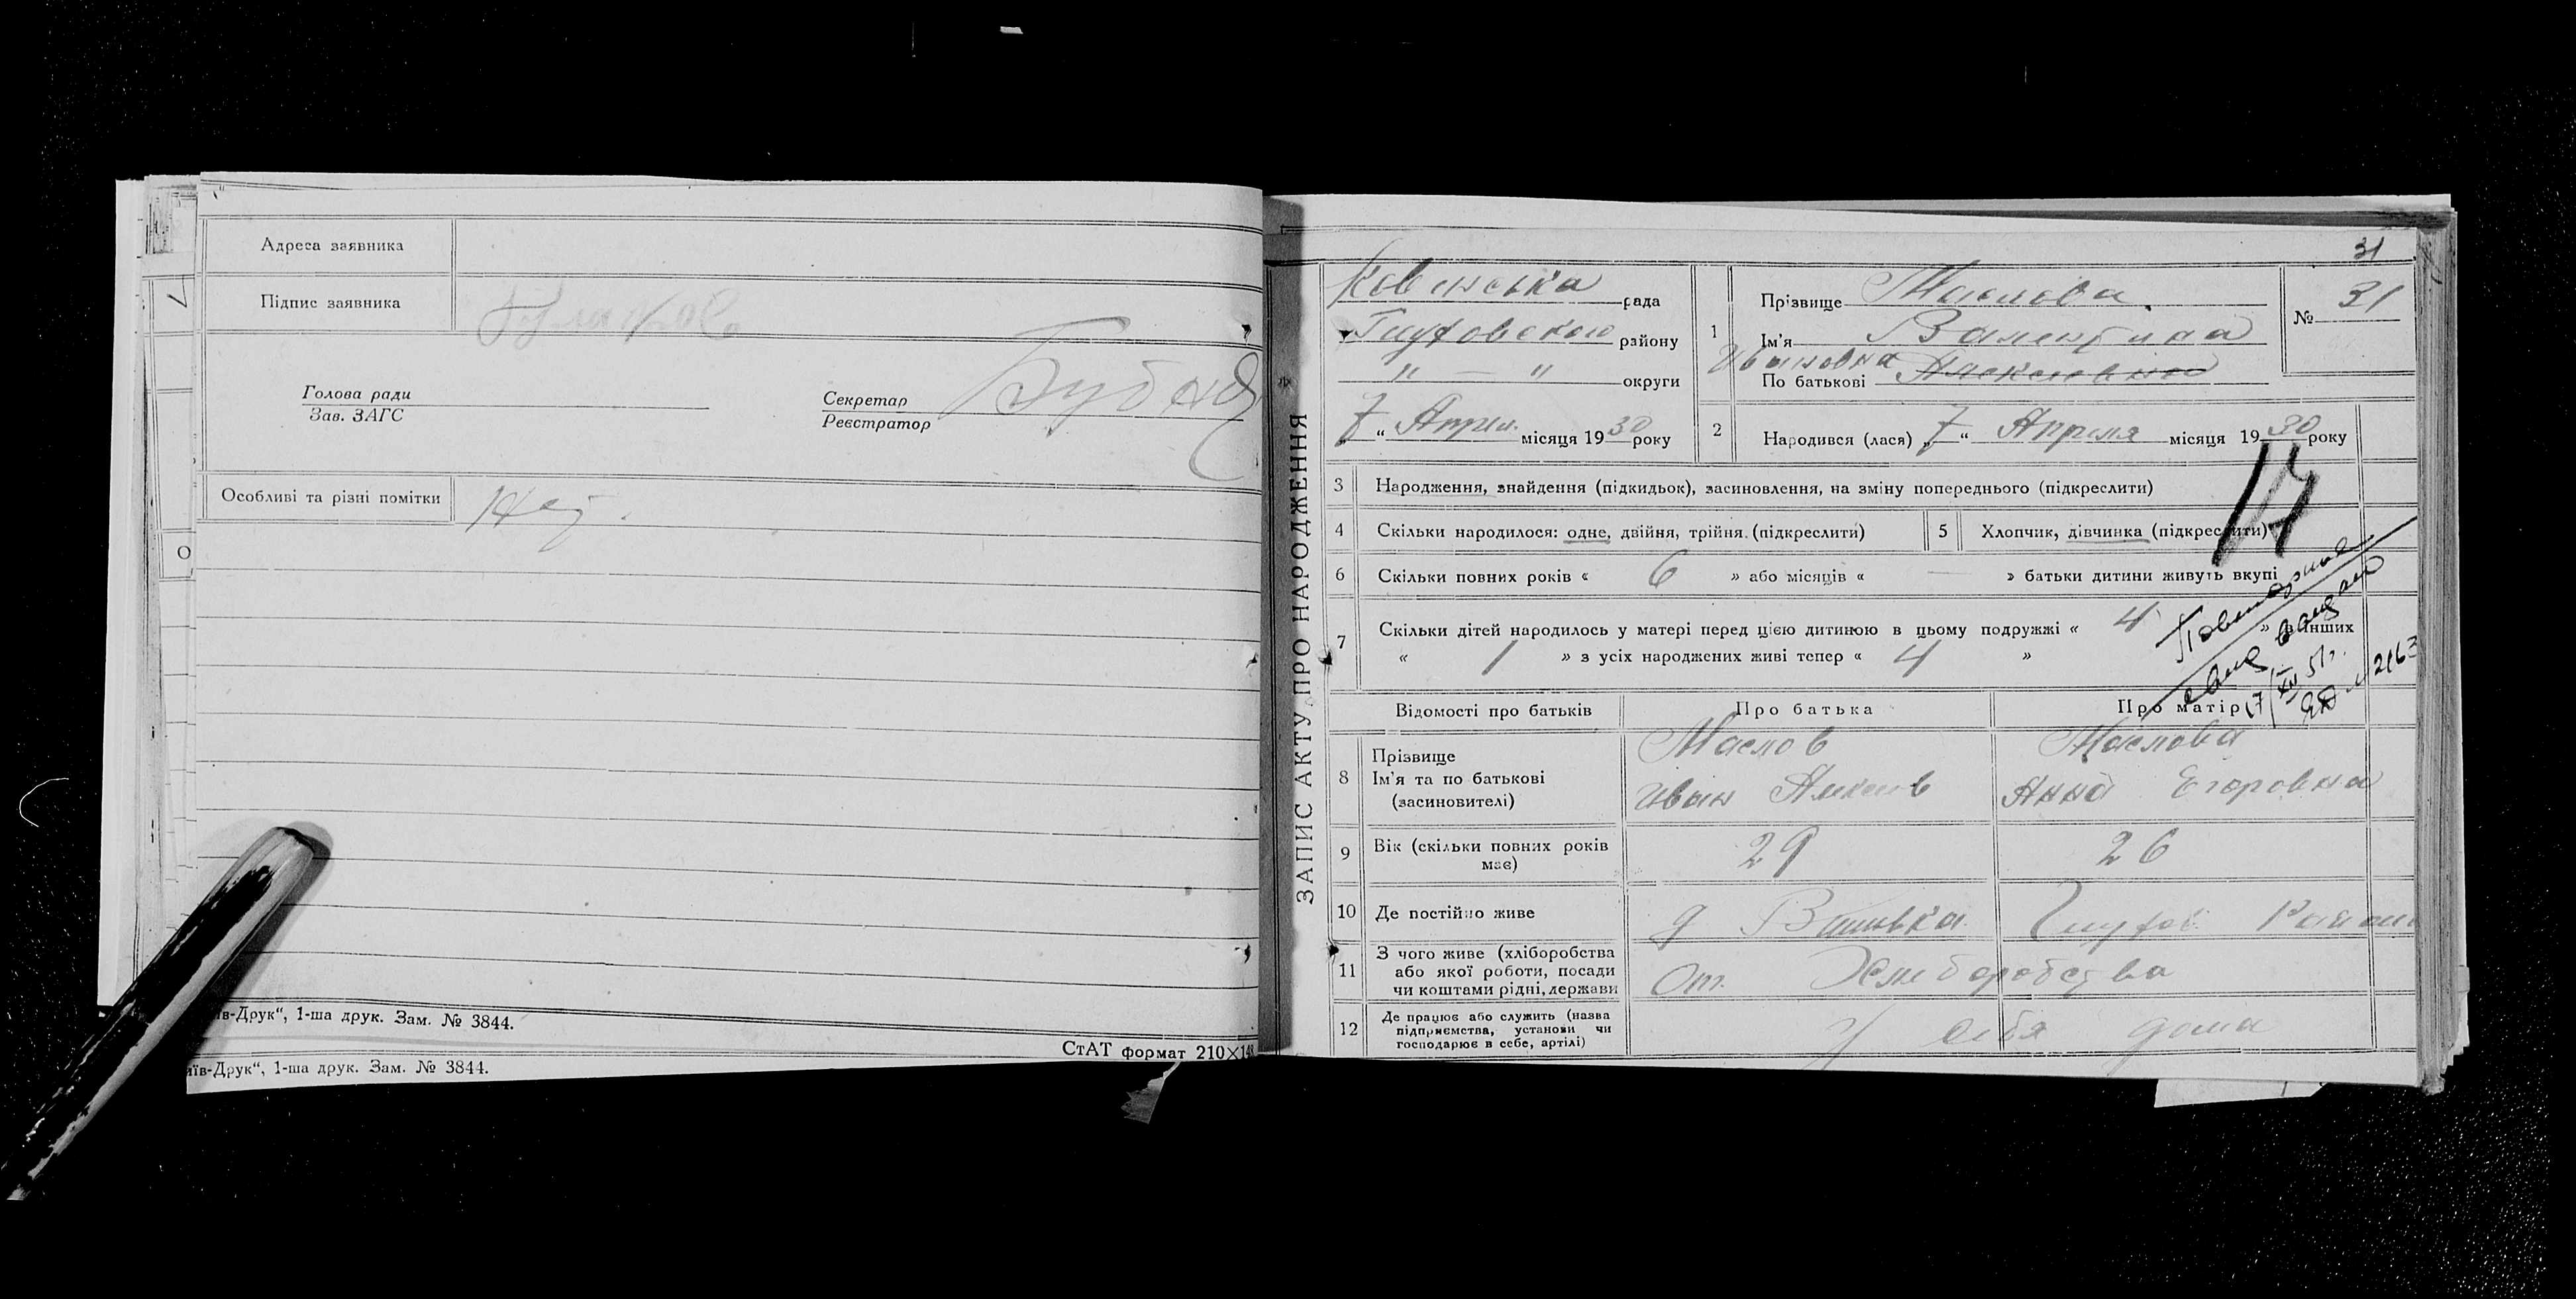 Адреса заявника
Підпис заявника
Голова ради
Зав. ЗАГС
Секретар
Реєстратор
Особливі та різні помітки Нет.
їв-Друк“, 1-ша друк. Зам. № 3844.
СтАТ формат 210×148
иїв-Друк“, 1-ша друк. Зам. № 3844.
ЗАПИС АКТУ ПРО НАРОДЖЕННЯ
31
рада
Глуховского району
" — " округи
7 “ Апрел. місяця 1930 року
1 Прізвище Маслова
Ім'я Валентина
Ивановна
По батькові
№ 31
2 Народився (лася) „7 “ Апреля місяця 1930 року
3 Народження, знайдення (підкидьок), засиновлення, на зміну попереднього (підкреслити)
4 Скільки народилося: одне, двійня, трійня (підкреслити)
5 Хлопчик, дівчинка (підкреслити)
6 Скільки повних років « 6 » або місяців « — » батьки дитини живуть вкупі
7 Скільки дітей народилось у матері перед цією дитиною в цьому подружжі « 4 » в інших
« 1 » з усіх народжених живі тепер « 4 »
Повторное
свид выдано
17/XII 51г.
2163
Відомості про батьків
Про батька
Про матір
8 Прізвище
Ім'я та по батькові
(засиновителі)
Маслов
Иван
Маслова
Анна Егоровна
9 Вік (скільки повних років має)
29
26
10 Де постійно живе
11 З чого живе (хліборобства
або якої роботи, посади
чи коштами рідні, держави
От Хлиборобства
12 Де працює або служить (назва
підприємства, установи чи
господарює в себе, артілі)
У себя дома